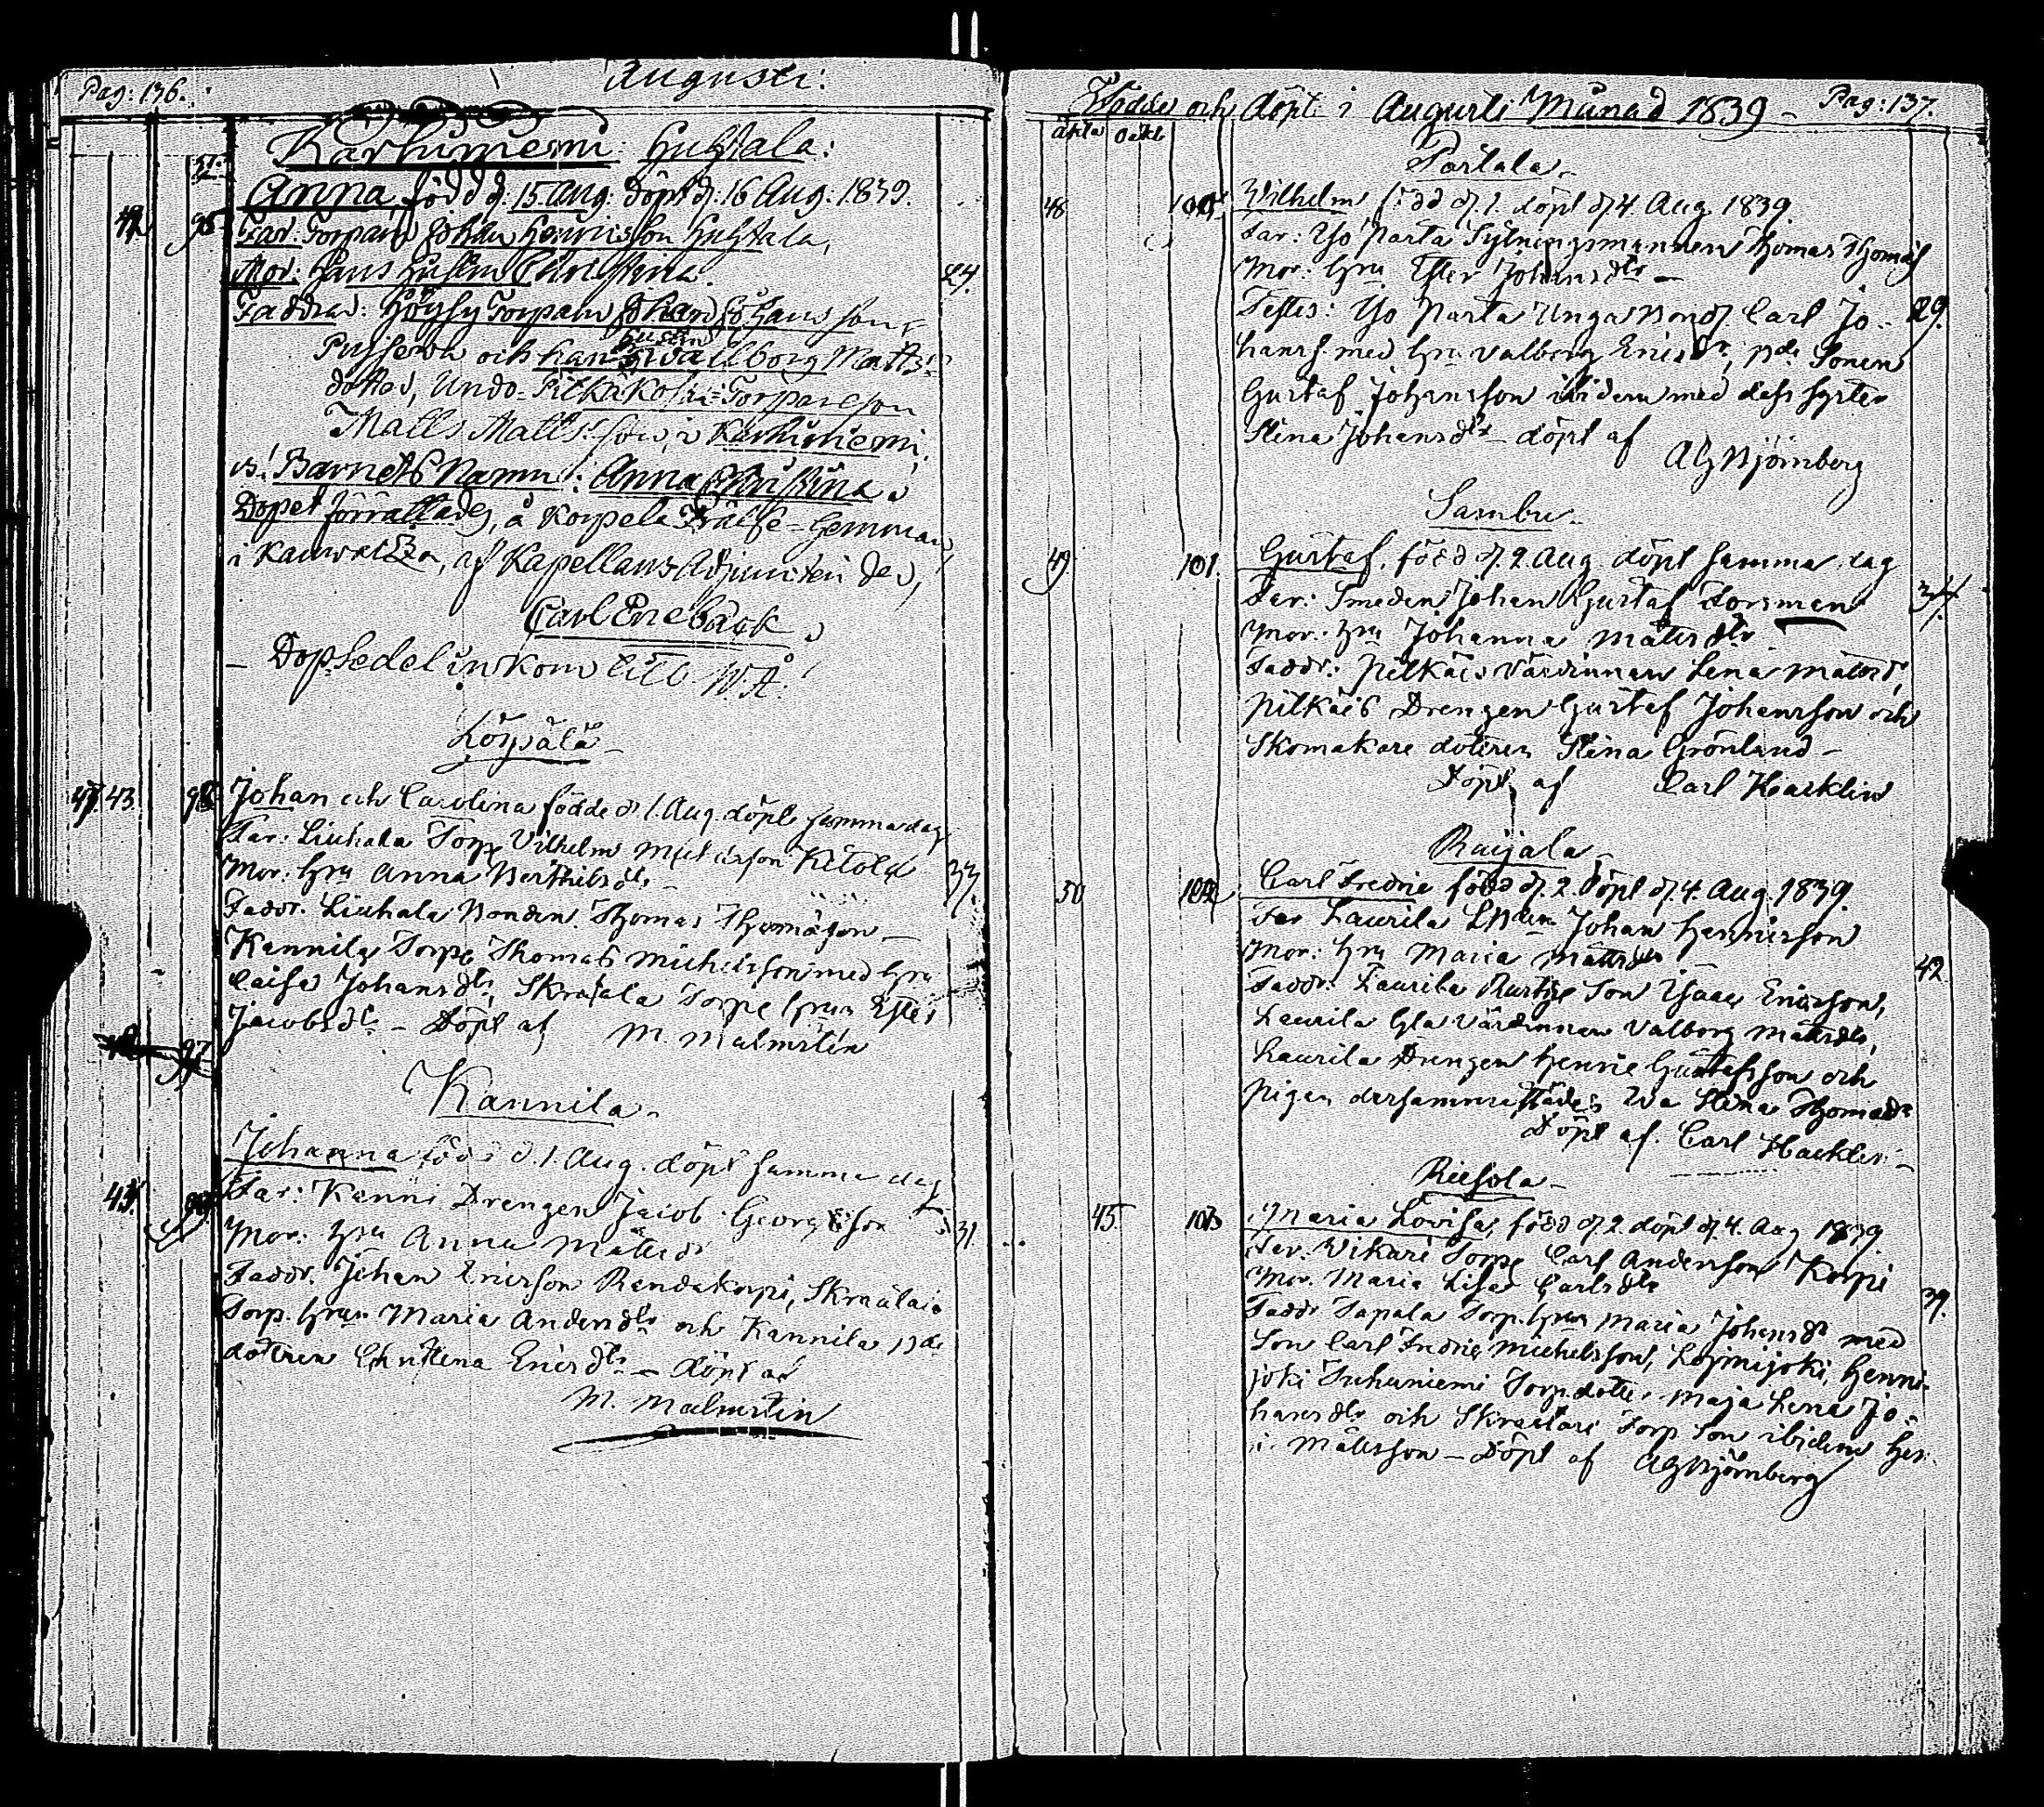 Pag: 136.
Augusti:
Karhiniemi: Huhtala:
Anna, född d: 15 Aug: Döpt d: 16 Aug: 1839.
Far: Torparn Johan Henricsson Huhtala,
Mor: Hans Hustru Christina.
24.
Faddrar: Höysy Torparn Johan Johansson
och hans Hustru Wallborg Matts-
dotter, Undo-Pitkäkoski-Torpareson
Matts Mattsson, i Karhiniemi,
Barnets Namn: Anna Christina.
Dopet förrättades, å Korpela Frälse-Hemman
i Kauvatsa, af Kapellans Adjuncten der,
Carl Enebäck.
– Dopsedel inkom till W.Å:
Löypälä –
47 43 98 Johan och Carolina födde d 1. Aug. döpt samma dag
Far: Liuhala Torp Vilhelm Michelsson Ketola
Mor: hru Anna Berthilsdr –
37.
Faddr. Liuhala Bonden Thomas Thomasson –
Kannila Torpe Thomas Michelsson med hru
Caisa Johansdr, Skraatala Torpe hrun Ester
Jacobsdr – Döpt af M. Malmstén
97
Kannila –
Johanna född d. 1. Aug. döpt samma dag
44. 99 Far: Kanni Drengen Jacob Georgsson
Mor: hru Anna Mattsdr
31
Faddr. Johan Ericsson Randakorpi,
Torp. hrun Maria Andersdr och Kannila
dottren Christina Ericsdr – döpt af
M. Malmstén
Födde och döpte i Augusti Månad 1839 – Pag: 137.
äkta oäkt
Partala –
48 100 Wilhelm född d. 1. döpt d. 4. Aug 1839.
Far: Yso Parta Sytningsmannen Thomas Thomass
Mor: hru Ester Johansdr –
29.
Testes: Yso Parta Unga Bond. Carl Jo-
hanss. med hru Valborg Ericsdr, Sonen
Gustaf Johansson ibidem med dess syster
Stina Johansdr – döpt af
AG Björnberg
Sambu –
49 101. Gustaf, född d. 2. Aug. döpt samma dag
Far: Smeden Johan Gustaf Forsman
34.
Mor: hru Johanna Mattsdr
Faddr: Pitkäis Värdinnan Lena Mattsd,
Pitkäis Drengen Gustaf Johansson och
Skomakare dottren Stina Grönlund –
Döpt af Carl Hacklin
Raijala –
50 102 Carl Fredric född d. 2. döpt d. 4. Aug. 1839.
Far Laurila Johan Henricsson
Mor: hru Maria Mattsdr
42
Faddr: Laurila Son Isaac Ericsson,
Laurila Gla Värdinnan Valborg Mattsdr,
Laurila Drengen Henric Gustafsson och
Pigan dersammastädes Eva Stina Thomasdr
Döpt af. Carl Hacklin –
Riesola –
45 103 Maria Lovisa, född d. 2. döpt d. 4. Aug 1839.
Far: Vikari Torp Carl Andersson Korpi
Mor. Maria Lisa Carlsdr
39.
Faddr Tapala Torp. hrun Maria Johansdr med
Son Carl Fredric Michelsson, Loimijoki, Henni-
joki Suhuniemi Torp. dotter Maja Lena Jo-
hansdr och Torp Son ibidem Hen
Mattsson – Döpt af AG Björnberg